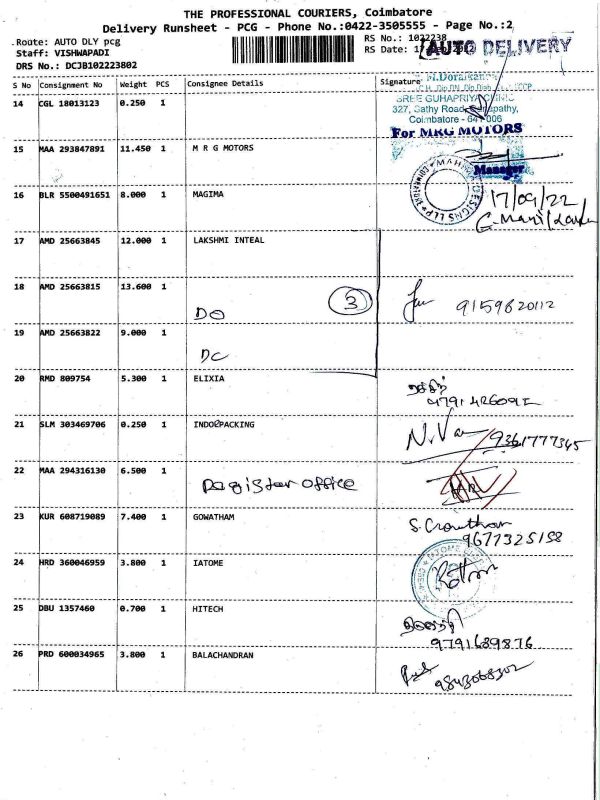 THE PROFESSIONAL COURIERS, Coimbatore
Delivery Runsheet - PCG - Phone No.:0422-3505555 - Page No.:2
Route: AUTO DLY pcg
RS No.: 1022238
AUTO DELIVERY
Staff: VISHWAPADI
RS Date:
DRS No.: DCJB102223802
S No Consignment No Weight PCS Consignee Details Signature
14 CGL 18013123 0.250 1
SREE GUHAPRIYA CLINIC
327, Sathy Road,
Coimbatore - 641 006
For MRG MOTORS
15 MAA 293847891 11.450 1 M R G MOTORS
Manager
16 BLR 5500491651 8.000 1 MAGIMA
17/09/22
17 AMD 25663845 12.000 1 LAKSHMI INTEAL
18 AMD 25663815 13.600 1
DO
3
9159620112
19 AMD 25663822 9.000 1
DC
20 RMD 809754 5.300 1 ELIXIA
21 SLM 303469706 0.250 1 INDOEPACKING
9361777345
22 MAA 294316130 6.500 1
Pagistar office
23 KUR 608719089 7.400 1 GOWATHAM
9677325158
24 HRD 360046959 3.800 1 IATOME
25 DBU 1357460 0.700 1 HITECH
9791689876
26 PRD 600034965 3.800 1 BALACHANDRAN